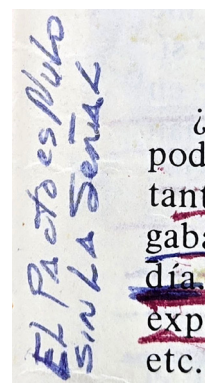 EL PActo es NuLo
SiN LA SeñAL
¿
pod
tant
gaba
día.
exp
etc.